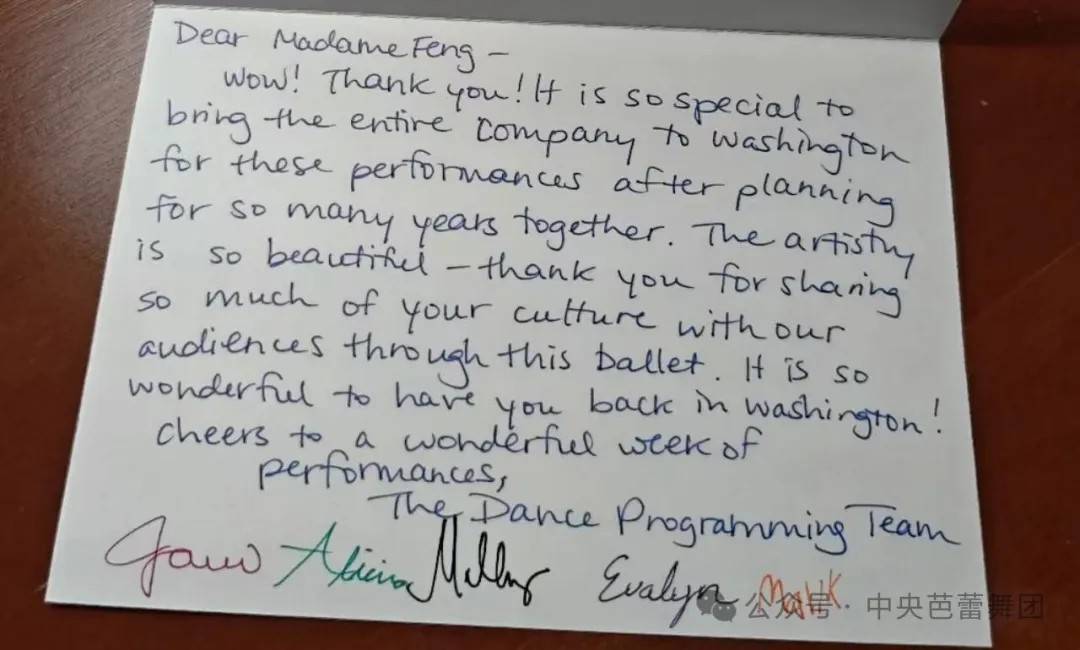 Dear Madame Feng –
Wow! Thank you! It is so special to
bring the entire company to Washington
for these performances after planning
for so many years together. The artistry
is so beautiful – thank you for sharing
so much of your culture with our
audiences through this ballet. It is so
wonderful to have you back in Washington!
Cheers to a wonderful week of
performances,
The Dance Programming Team
Alicia Evalyn Malik
公众号 · 中央芭蕾舞团